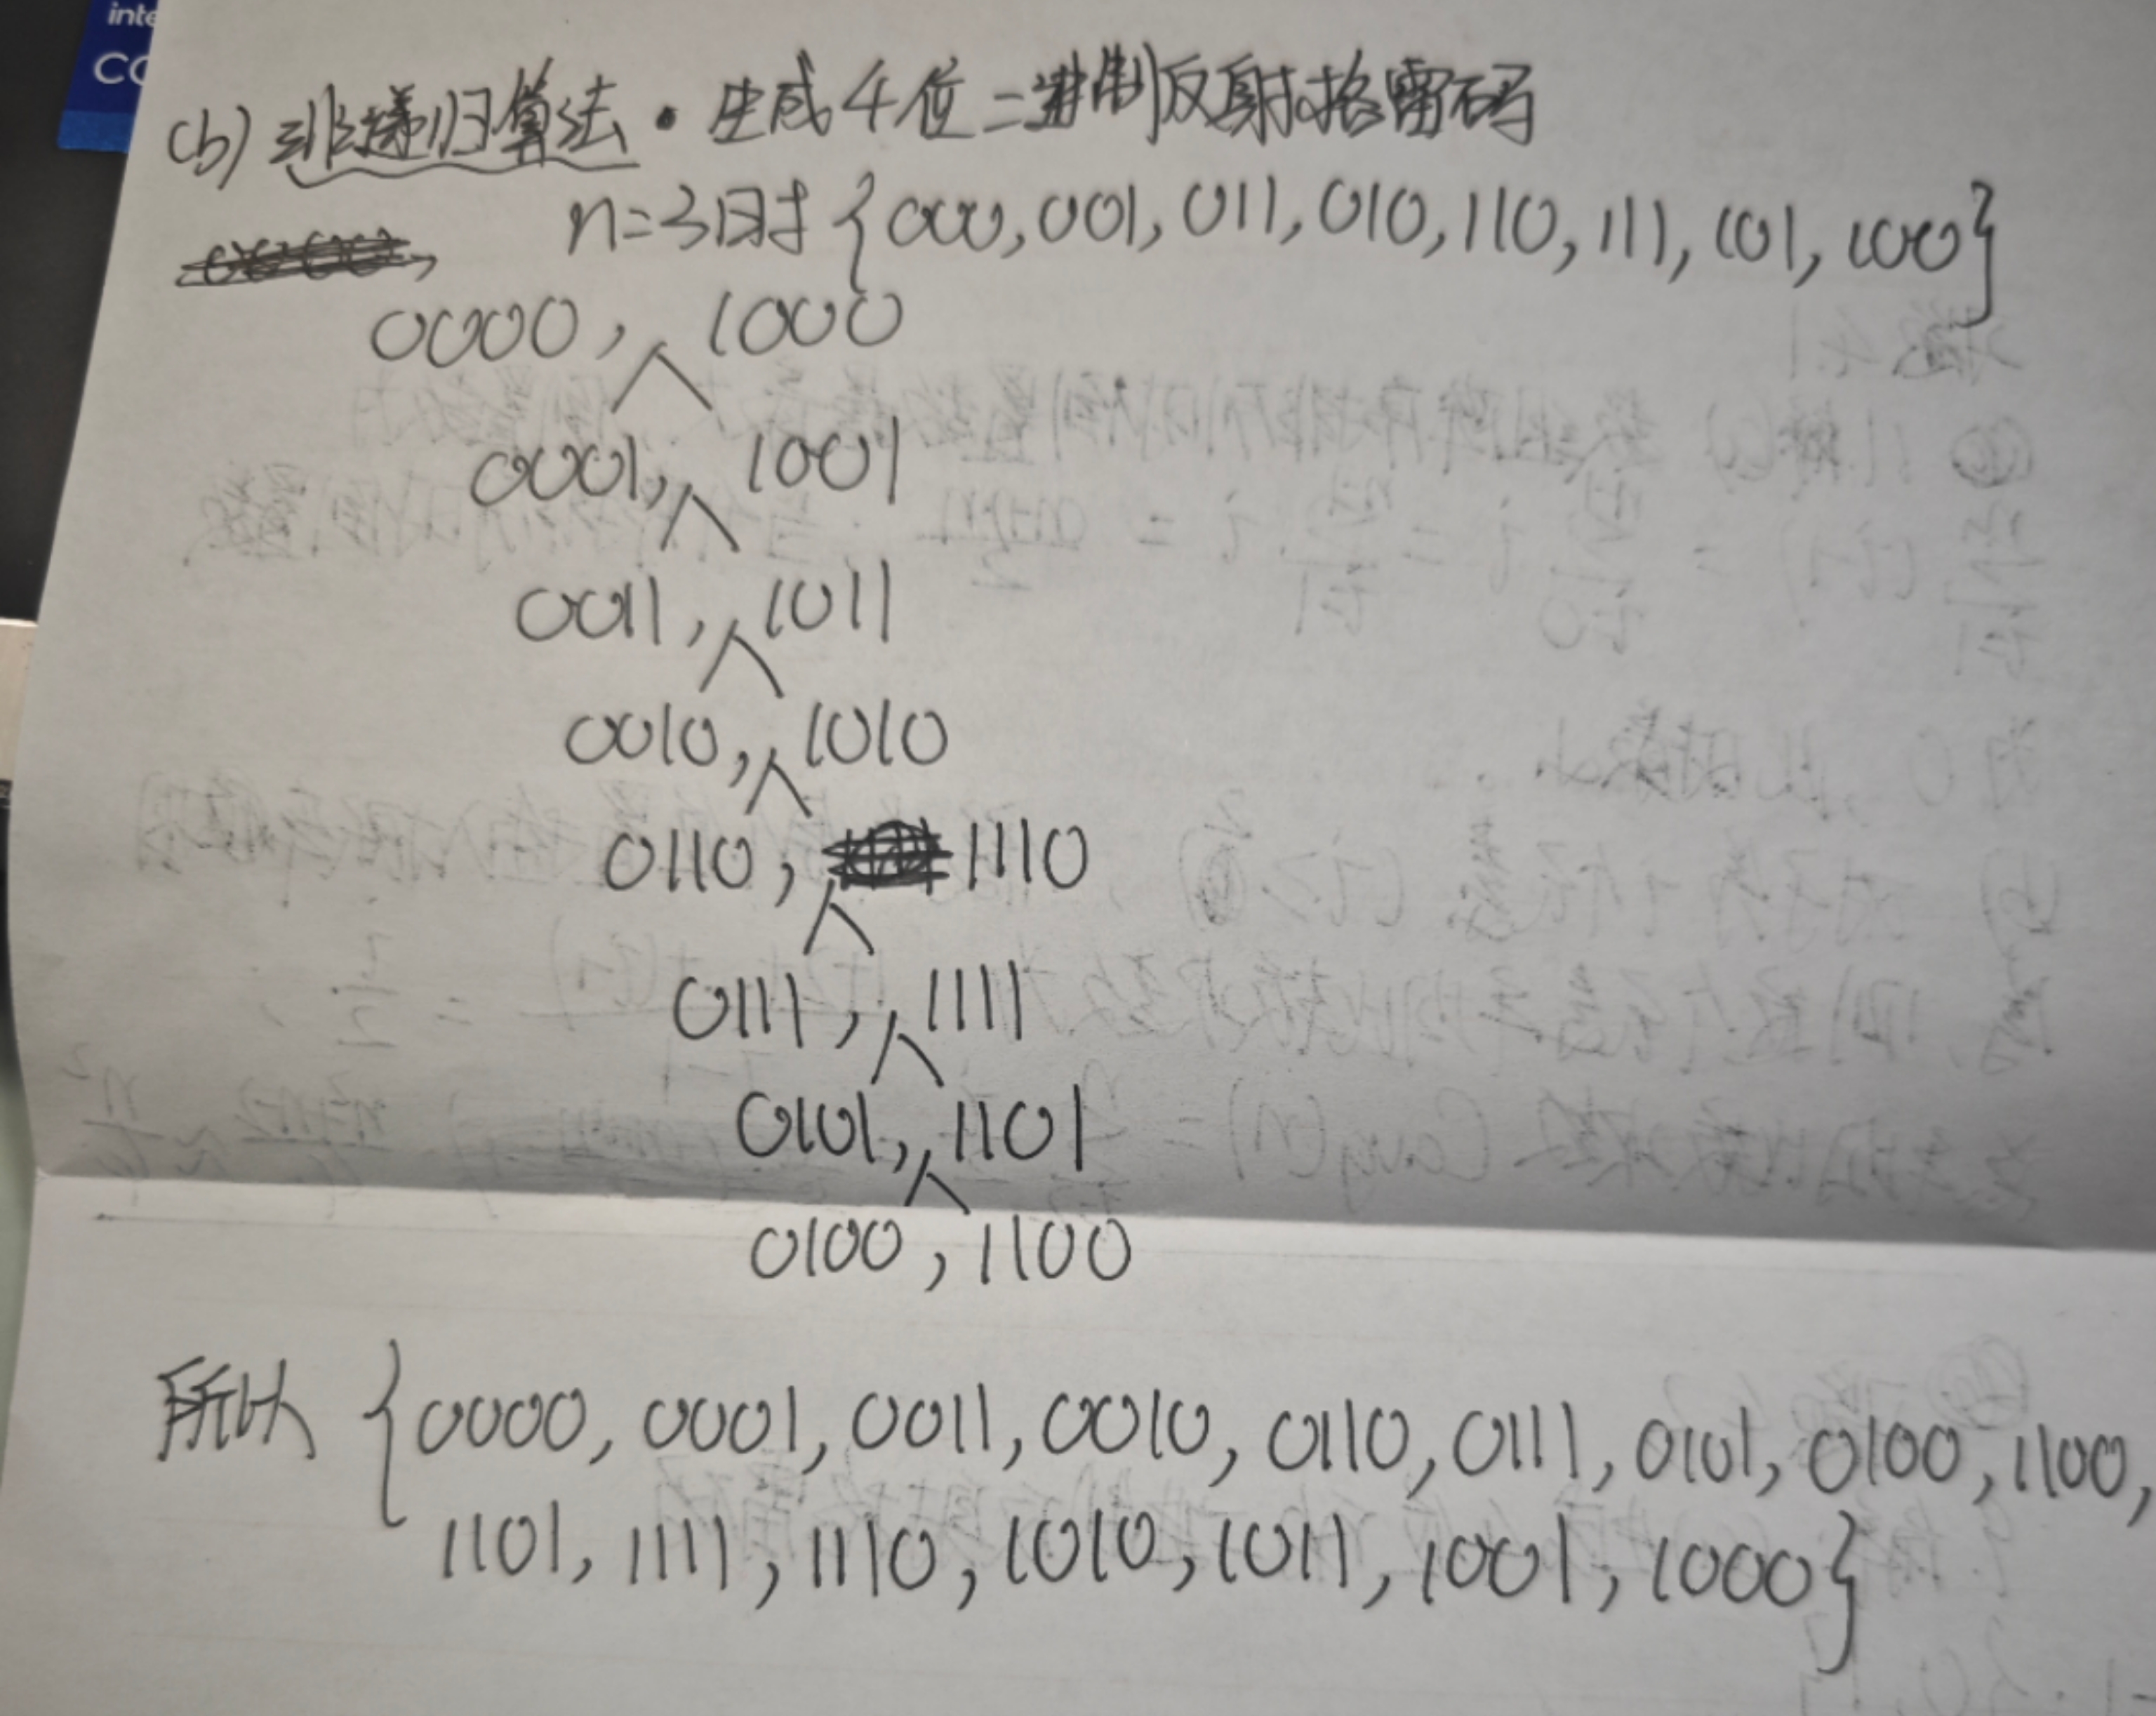 inte
CO
(b) 非递归算法. 生成4位二进制反射格雷码
n=3时 {000, 001, 011, 010, 110, 111, 101, 100}
0000, 1000
0001, 1001
0011, 1011
0010, 1010
0110, 1110
0111, 1111
0101, 1101
0100, 1100
所以 {0000, 0001, 0011, 0010, 0110, 0111, 0101, 0100, 1100,
1101, 1111, 1110, 1010, 1011, 1001, 1000}